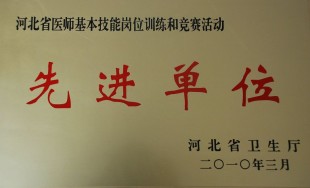 河北省医师基本技能岗位训练和竞赛活动
先进单位
河北省卫生厅
二〇一〇年三月